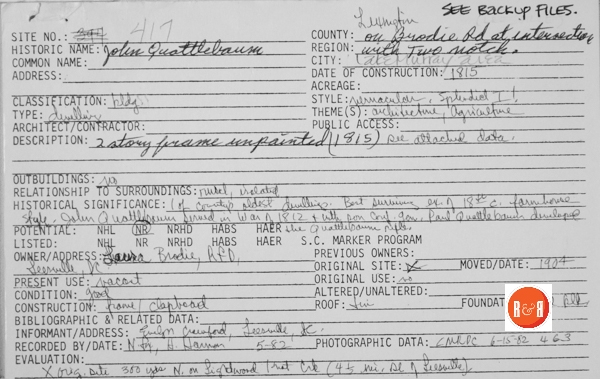 SEE BACKUP FILES.
SITE NO.: 417
Lexington
COUNTY: on Brodie Rd at intersection
HISTORIC NAME: John Quattlebaum
REGION: with Two notch.
COMMON NAME:
CITY: Lake Murray area
ADDRESS:
DATE OF CONSTRUCTION: 1815
ACREAGE:
CLASSIFICATION: bldg.
STYLE: vernacular, Splendid I!
TYPE: dwelling
THEME(S): architecture, Agriculture
ARCHITECT/CONTRACTOR:
PUBLIC ACCESS:
DESCRIPTION: 2 story frame unpainted (1815) see attached data.
OUTBUILDINGS: no
RELATIONSHIP TO SURROUNDINGS: rural, isolated
HISTORICAL SIGNIFICANCE: 1 of county's oldest dwellings. Best surviving ex. of 18th c. farmhouse
style. John Quattlebaum served in War of 1812 & with son Paul Quattlebaum developed
the Quattlebaum rifle.
POTENTIAL: NHL NR NRHD HABS HAER
LISTED: NHL NR NRHD HABS HAER S.C. MARKER PROGRAM
OWNER/ADDRESS: Laura Brodie, RFD,
Leesville, SC
PREVIOUS OWNERS:
ORIGINAL SITE: X MOVED/DATE: 1904
PRESENT USE: vacant
ORIGINAL USE: no
CONDITION: good
ALTERED/UNALTERED:
CONSTRUCTION: frame/clapboard
ROOF: tin FOUNDAT
BIBLIOGRAPHIC & RELATED DATA:
INFORMANT/ADDRESS: Evelyn Crawford, Leesville SC
RECORDED BY/DATE: N. Harmon 5-82 PHOTOGRAPHIC DATA: CMRPC 6-15-82 4 6 3
EVALUATION:
X orig. site 300 yds N. on Lightwood Knot Crk (4½ mi. SE of Leesville)
R&R